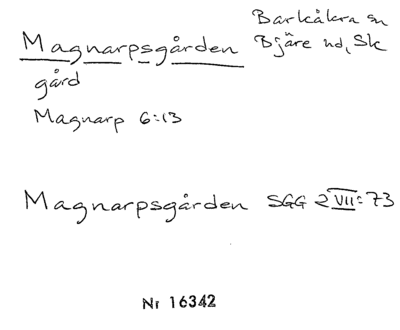 Magnarpsgården
Barkåkra sn
Bjäre hd, Sk
gård
Magnarp 6:13
Magnarpsgården SGG 2 VII:73
Nr 16342